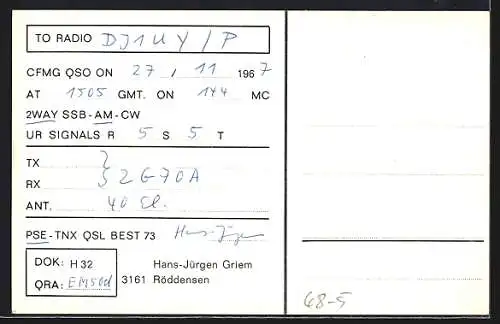 TO RADIO DJ1UY/P
CFMG QSO ON 27 / 11 1967
AT 1505 GMT. ON 144 MC
2WAY SSB-AM-CW
UR SIGNALS R 5 S 5 T
TX
RX 2G70A
ANT. 40 El.
PSE-TNX QSL BEST 73 Hans-Jürgen
DOK: H 32
QRA: EM50d
Hans-Jürgen Griem
3161 Röddensen
68-5